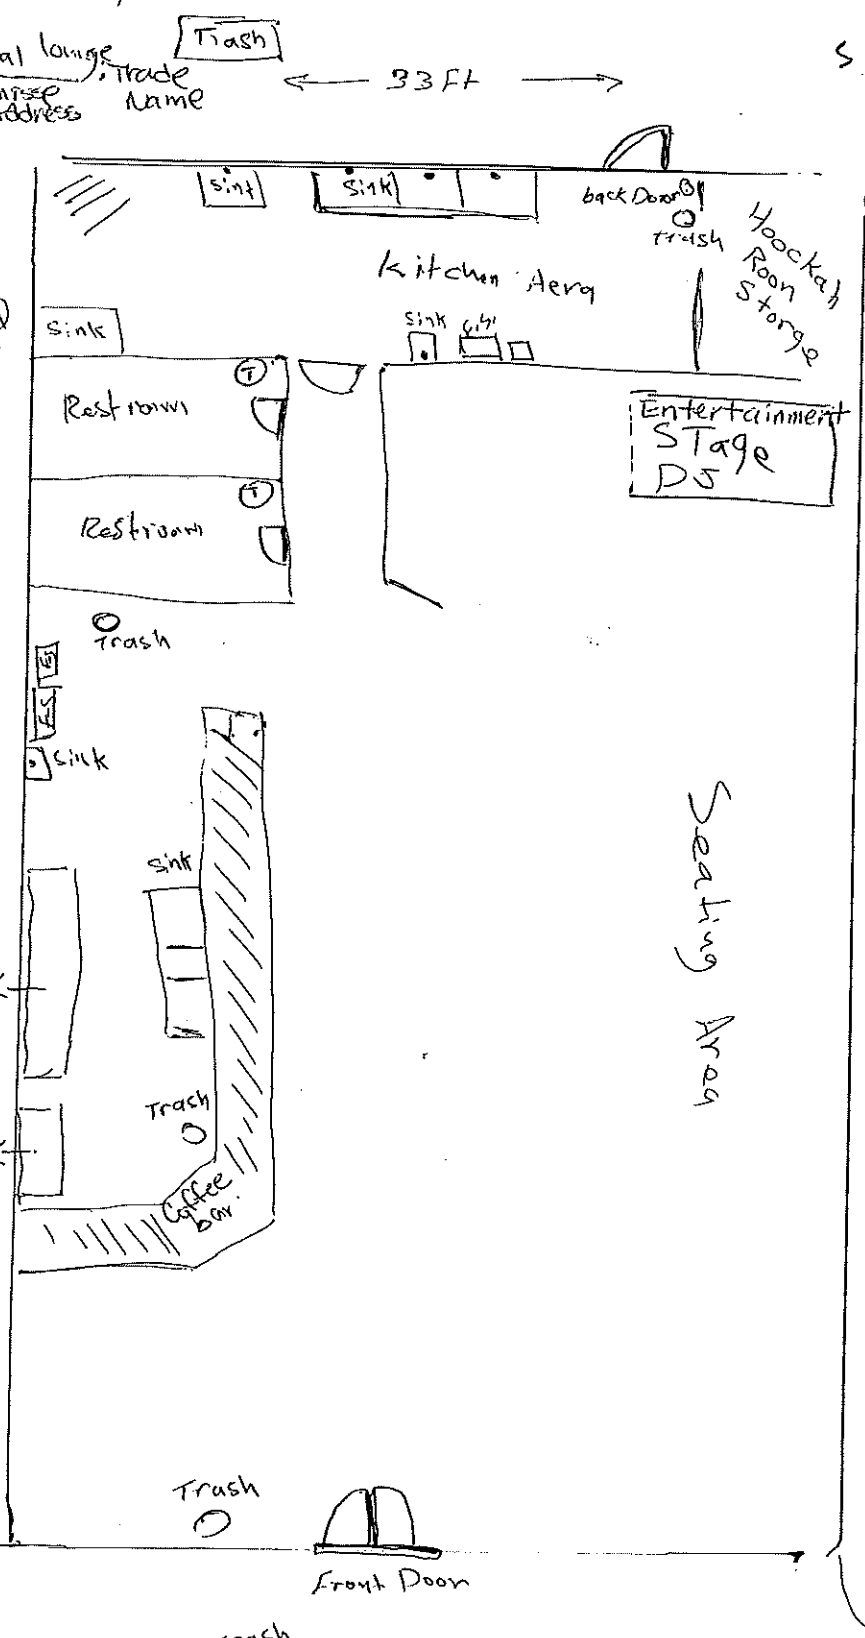 al lounge
Trash
Trade
Name
Address
33 Ft
S
Sint
Sink
back Door
Trash
Hoockah
Roon
Storge
Kitchen Aerg
Sink
Sink
T
Restroom
Entertainment
STage
DJ
T
Restroom
Trash
Sink
Sink
Seating Area
Trash
Coffee
bar.
Trash
Front Door